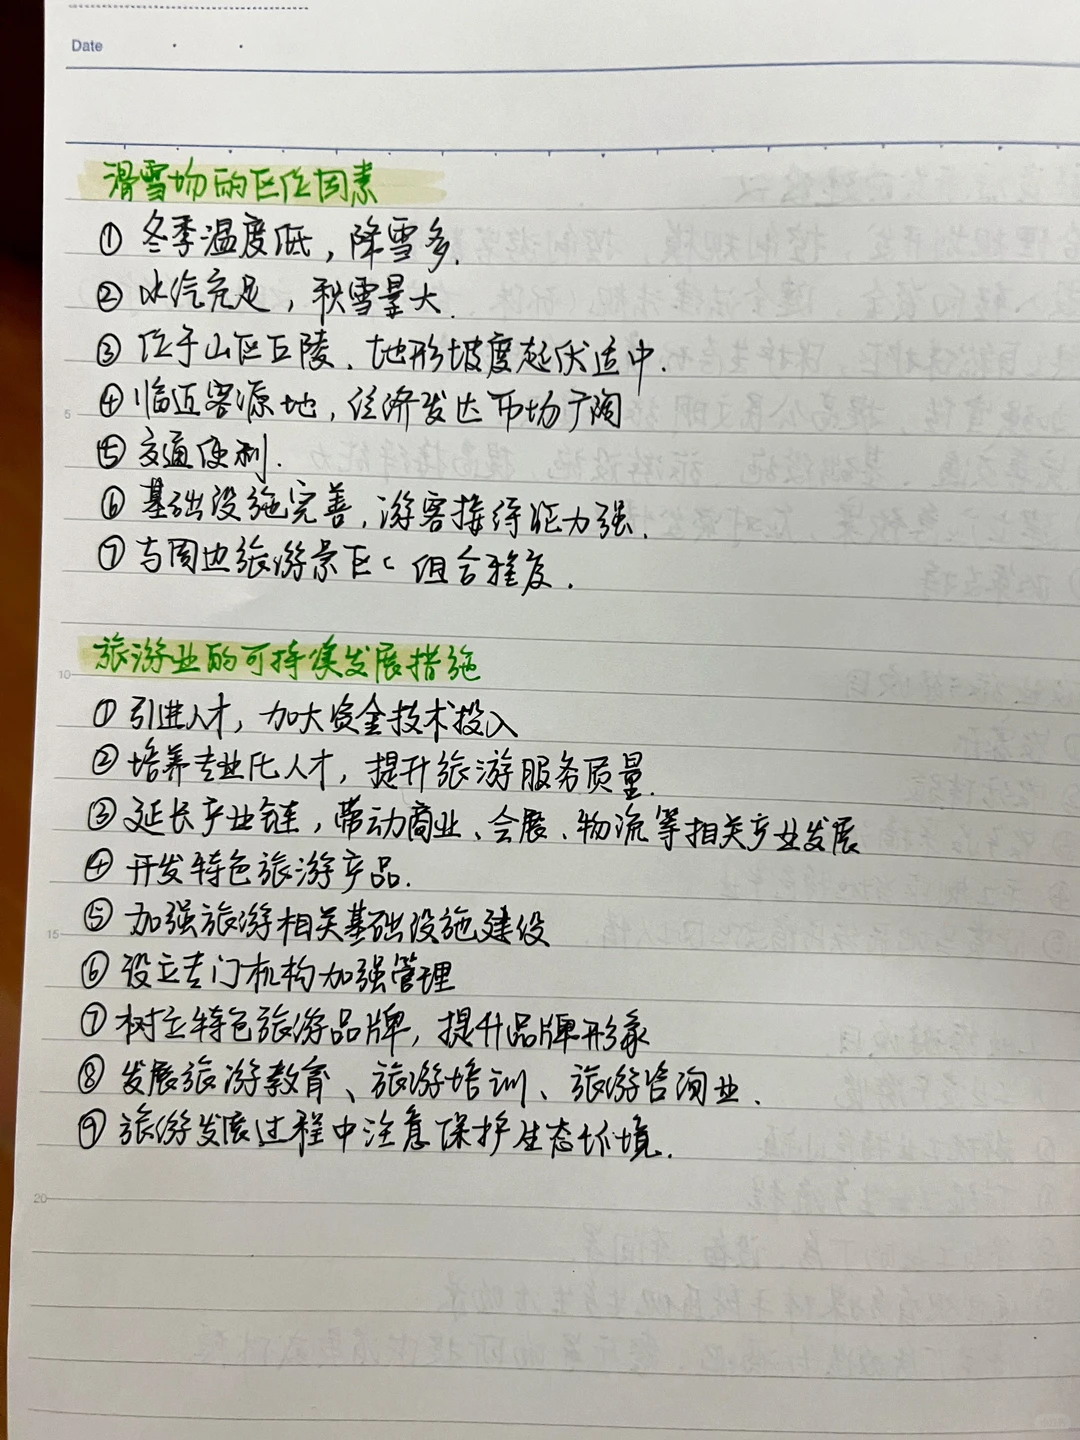 Date
滑雪场的区位因素
① 冬季温度低，降雪多.
② 水汽充足，积雪量大.
③ 位于山区丘陵、地形坡度起伏适中.
④ 临近客源地，经济发达市场广阔
⑤ 交通便利.
⑥ 基础设施完善，游客接待能力强.
⑦ 与周边旅游景区组合
5
旅游业的可持续发展措施
10
① 引进人才，加大资金技术投入
② 培养专业化人才，提升旅游服务质量.
③ 延长产业链，带动商业、会展、物流等相关产业发展
④ 开发特色旅游产品.
⑤ 加强旅游相关基础设施建设
15
⑥ 设立专门机构加强管理
⑦ 树立特色旅游品牌，提升品牌形象
⑧ 发展旅游教育、旅游培训、旅游咨询业.
⑨ 旅游发展过程中注意保护生态环境.
20